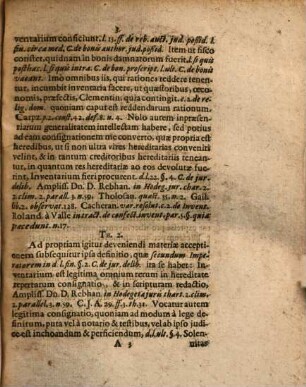 3
ventarium conficiunt. l. 15. ff. de reb. auct. jud. possid. l.
fin. circa med. C. de bonis author. jud. possid. Item ut fisco
constet, quidnam in bonis damnatorum fuerit, l. si quis
posthac. l. si quis intra. C. de bon. proscript. l. ult. C. de bonis
vacant. Imò omnibus iis, qui rationes reddere tenen-
tur, incumbit inventaria facere, ut quæstoribus, œco-
nomis, præfectis, Clementin. quia contingit. §. 2. de re-
lig. dom. quoniam caput est reddendarum rationum.
Carpz. p. 2. const. 42. def. 2. n. 4. Nolo autem in præsen-
tiarum generalitatem intellectam habere, sed potius
ad eam consignationem me converto, quæ propria est
heredibus, ut si non ultra vires hereditarias conveniri
velint, & in tantum creditoribus hereditariis tenean-
tur, in quantum res hereditariæ ad eos devolutæ fue-
rint, Inventarium fieri procurent. d. l. 22. §. 4. C. de jur.
delib. Ampliss. Dn. D. Rebhan. in Hodeg. jur. chart. 2.
clim. 2. parall. 5. n. 39. Tholosan.
lib. 2. observat. 138. Cacheran. var. resolut. c. 2. de Invent.
Roland. à Valle tract. de confect. invent. par. 5. §. quia
pace dunt. n. 17.
TH. 2.
Ad propriam igitur deveniendi materiæ accepti-
onem subsequitur ipsa definitio, quæ secundum Impe-
ratorem in d. l. fin. §. 2. C. de jur. delib. ita se habet: In-
ventarium est legitima omnium rerum in hereditate
repertarum consignatio, & in scripturam redactio,
Ampliss. Dn. D. Rebhan in Hodegeta juris chart. 2. clim.
2. parallel. 5. n. 39. C. J. A. 29. ff. 5. Th. 31. Vocatur autem
legitima consignatio, quoniam ad modum à lege defi-
nitum, puta vel à notario & testibus, vel ab ipso judi-
ce est inchoandum & perficiendum, d. l. ult. §. 4. Solen-
A 3 nitas